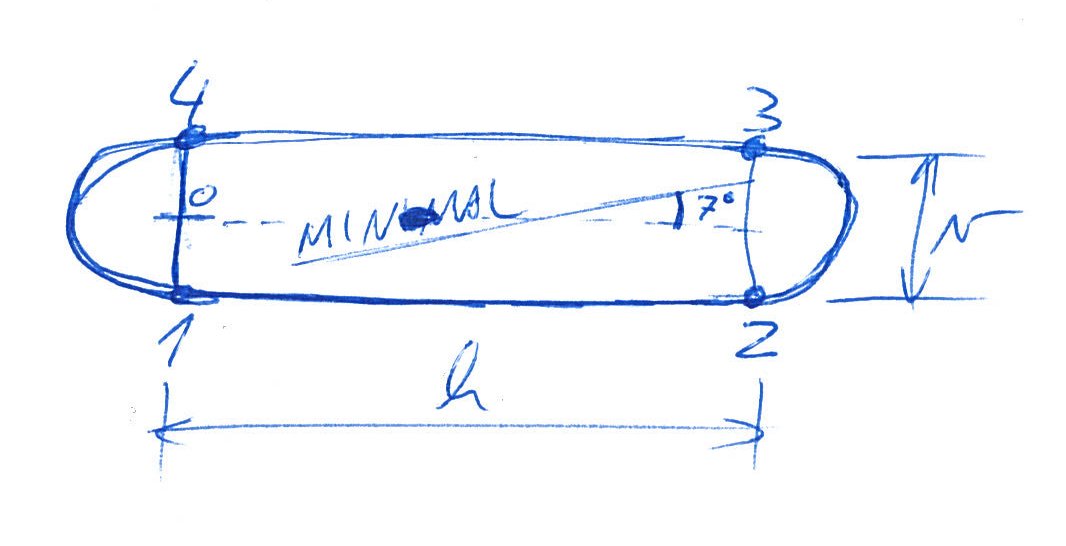 4
3
0
MINIMAL
7°
N
1
2
h